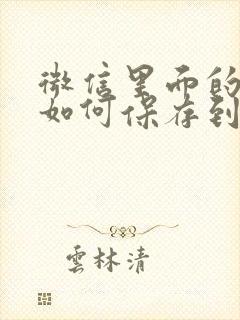 微信里面的
如何保存到
雲林清